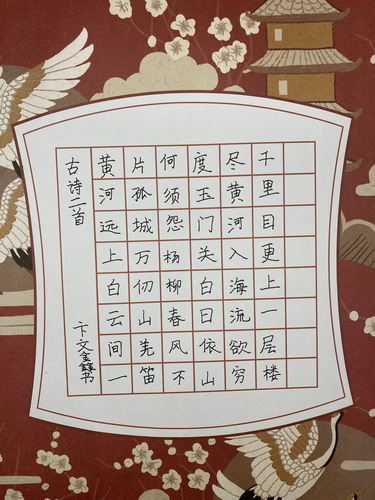 古诗二首
黄河远上白云间一
片孤城万仞山羌笛
何须怨杨柳春风不
度玉门关白日依山
尽黄河入海流欲穷
千里目更上一层楼
卞文鑫书